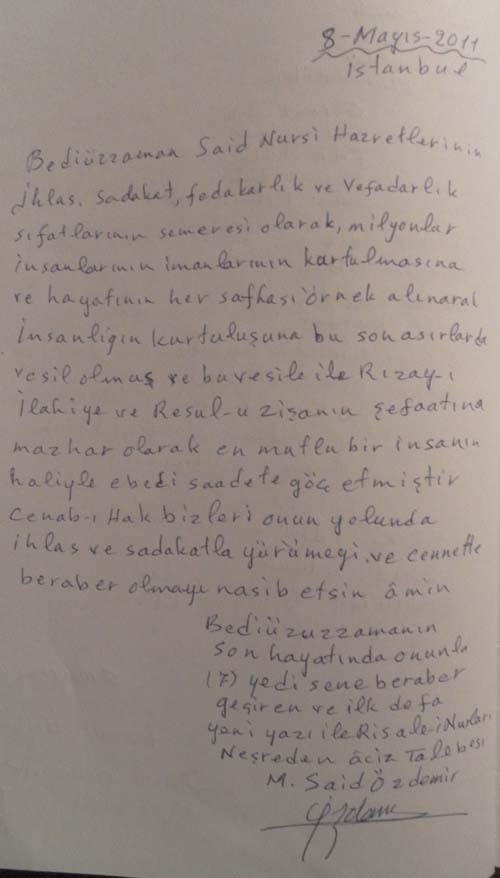 8-Mayıs-2011
istanbul
Bediüzzaman Said Nursi Hazretlerinin
ihlas, sadakat, fedakarlık ve vefadarlık
sıfatlarının semeresi olarak, milyonlar
insanlarının imanlarının kurtulmasına
ve hayatının her safhası örnek alınarak
insanlığın kurtuluşuna bu son asırlarda
vesil olmuş ve bu vesile ile Rızay-ı
ilahiye ve Resul-u zişanın şefaatına
mazhar olarak en mutlu bir insanın
haliyle ebedi saadete göç etmiştir
Cenab-ı Hak bizleri onun yolunda
ihlas ve sadakatla yürümeyi ve cennette
beraber olmayı nasib etsin âmin
Bediüzuzzamanın
son hayatında onunla
(7) yedi sene beraber
geçiren ve ilk defa
yeni yazı ile Risale-i Nurları
Neşreden âciz Talebesi
M. Said Özdemir